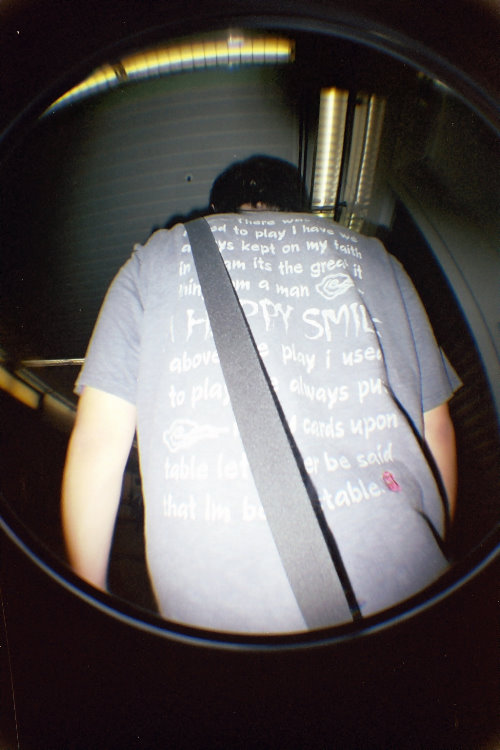 There wa
ed to play I have we
ays kept on my faith
in am its the great it
hin m a man
I H PPY SMIL
above e play i used
to pla always pu
cards upon
table let er be said
that Im be table.